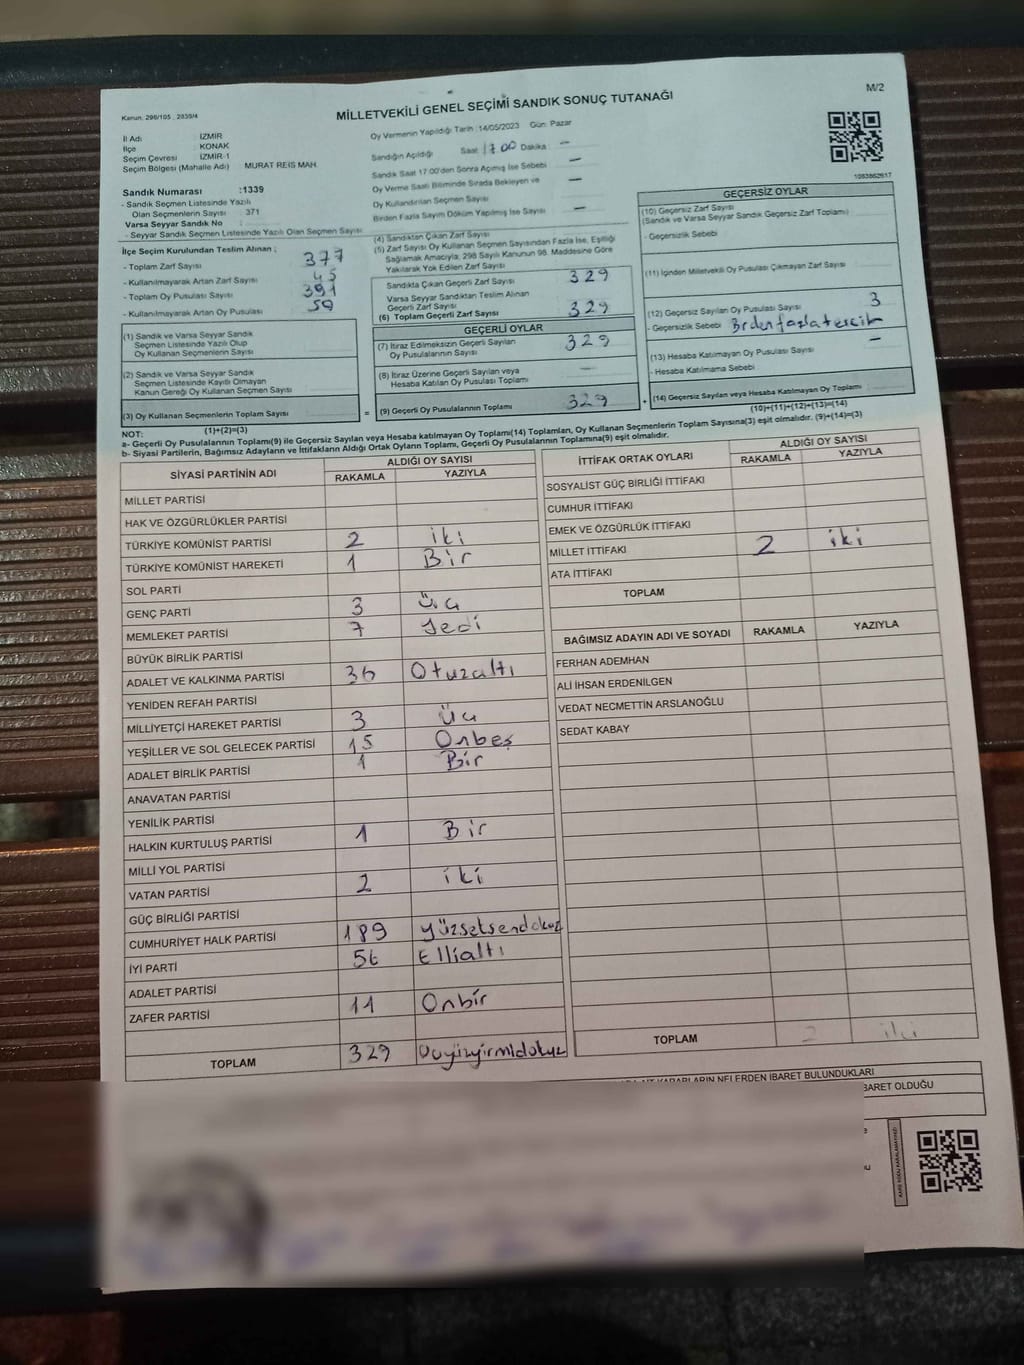 M/2
Kanun: 298/105 , 2839/4
MİLLETVEKİLİ GENEL SEÇİMİ SANDIK SONUÇ TUTANAĞI
İl Adı İZMİR
İlçe KONAK
Seçim Çevresi İZMİR-1
Seçim Bölgesi (Mahalle Adı) MURAT REİS MAH.
Oy Vermenin Yapıldığı Tarih :14/05/2023 Gün: Pazar
Sandığın Açıldığı Saat 17 00 Dakika –
Sandık Saat 17.00'den Sonra Açımış İse Sebebi –
Oy Verme Saati Bitiminde Sırada Bekleyen ve
Oy Kullandırılan Seçmen Sayısı –
Birden Fazla Sayım Döküm Yapılmış İse Sayısı –
1083862617
Sandık Numarası :1339
- Sandık Seçmen Listesinde Yazılı
Olan Seçmenlerin Sayısı : 371
Varsa Seyyar Sandık No
- Seyyar Sandık Seçmen Listesinde Yazılı Olan Seçmen Sayısı
İlçe Seçim Kurulundan Teslim Alınan ;
- Toplam Zarf Sayısı 377
- Kullanılmayarak Artan Zarf Sayısı 45
- Toplam Oy Pusulası Sayısı 391
- Kullanılmayarak Artan Oy Pusulası 59
(1) Sandık ve Varsa Seyyar Sandık
Seçmen Listesinde Yazılı Olup
Oy Kullanan Seçmenlerin Sayısı
(2) Sandık ve Varsa Seyyar Sandık
Seçmen Listesinde Kayıtlı Olmayan
Kanun Gereği Oy Kullanan Seçmen Sayısı
(3) Oy Kullanan Seçmenlerin Toplam Sayısı
(1)+(2)=(3)
(4) Sandıktan Çıkan Zarf Sayısı
(5) Zarf Sayısı Oy Kullanan Seçmen Sayısından Fazla İse, Eşitliği
Sağlamak Amacıyla, 298 Sayılı Kanunun 98. Maddesine Göre
Yakılarak Yok Edilen Zarf Sayısı
Sandıkta Çıkan Geçerli Zarf Sayısı 329
Varsa Seyyar Sandıktan Teslim Alınan
Geçerli Zarf Sayısı
(6) Toplam Geçerli Zarf Sayısı 329
GEÇERLİ OYLAR
(7) İtiraz Edilmeksizin Geçerli Sayılan
Oy Pusulalarının Sayısı 329
(8) İtiraz Üzerine Geçerli Sayılan veya
Hesaba Katılan Oy Pusulası Toplamı –
= (9) Geçerli Oy Pusulalarının Toplamı 329 +
GEÇERSİZ OYLAR
(10) Geçersiz Zarf Sayısı
(Sandık ve Varsa Seyyar Sandık Geçersiz Zarf Toplamı)
- Geçersizlik Sebebi
(11) İçinden Milletvekili Oy Pusulası Çıkmayan Zarf Sayısı
(12) Geçersiz Sayılan Oy Pusulası Sayısı 3
- Geçersizlik Sebebi Birden fazla tercih
(13) Hesaba Katılmayan Oy Pusulası Sayısı –
- Hesaba Katılmama Sebebi
(14) Geçersiz Sayılan veya Hesaba Katılmayan Oy Toplamı
(10)+(11)+(12)+(13)=(14)
NOT:
a- Geçerli Oy Pusulalarının Toplamı(9) ile Geçersiz Sayılan veya Hesaba katılmayan Oy Toplamı(14) Toplamları, Oy Kullanan Seçmenlerin Toplam Sayısına(3) eşit olmalıdır. (9)+(14)=(3)
b- Siyasi Partilerin, Bağımsız Adayların ve İttifakların Aldığı Ortak Oyların Toplamı, Geçerli Oy Pusulalarının Toplamına(9) eşit olmalıdır.
SİYASİ PARTİNİN ADI ALDIĞI OY SAYISI
RAKAMLA YAZIYLA
MİLLET PARTİSİ
HAK VE ÖZGÜRLÜKLER PARTİSİ
TÜRKİYE KOMÜNİST PARTİSİ 2 iki
TÜRKİYE KOMÜNİST HAREKETİ 1 Bir
SOL PARTİ
GENÇ PARTİ 3 Üç
MEMLEKET PARTİSİ 7 Yedi
BÜYÜK BİRLİK PARTİSİ
ADALET VE KALKINMA PARTİSİ 36 Otuzaltı
YENİDEN REFAH PARTİSİ
MİLLİYETÇİ HAREKET PARTİSİ 3 Üç
YEŞİLLER VE SOL GELECEK PARTİSİ 15 Onbeş
ADALET BİRLİK PARTİSİ 1 Bir
ANAVATAN PARTİSİ
YENİLİK PARTİSİ
HALKIN KURTULUŞ PARTİSİ 1 Bir
MİLLİ YOL PARTİSİ
VATAN PARTİSİ 2 iki
GÜÇ BİRLİĞİ PARTİSİ
CUMHURİYET HALK PARTİSİ 189 yüzseksendokuz
İYİ PARTİ 56 Ellialtı
ADALET PARTİSİ
ZAFER PARTİSİ 11 Onbir
TOPLAM 329
İTTİFAK ORTAK OYLARI ALDIĞI OY SAYISI
RAKAMLA YAZIYLA
SOSYALİST GÜÇ BİRLİĞİ İTTİFAKI
CUMHUR İTTİFAKI
EMEK VE ÖZGÜRLÜK İTTİFAKI
MİLLET İTTİFAKI 2 iki
ATA İTTİFAKI
TOPLAM
BAĞIMSIZ ADAYIN ADI VE SOYADI RAKAMLA YAZIYLA
FERHAN ADEMHAN
ALİ İHSAN ERDENİLGEN
VEDAT NECMETTİN ARSLANOĞLU
SEDAT KABAY
TOPLAM 2 iki
KARARLARIN NELERDEN İBARET BULUNDUKLARI
BARET OLDUĞU